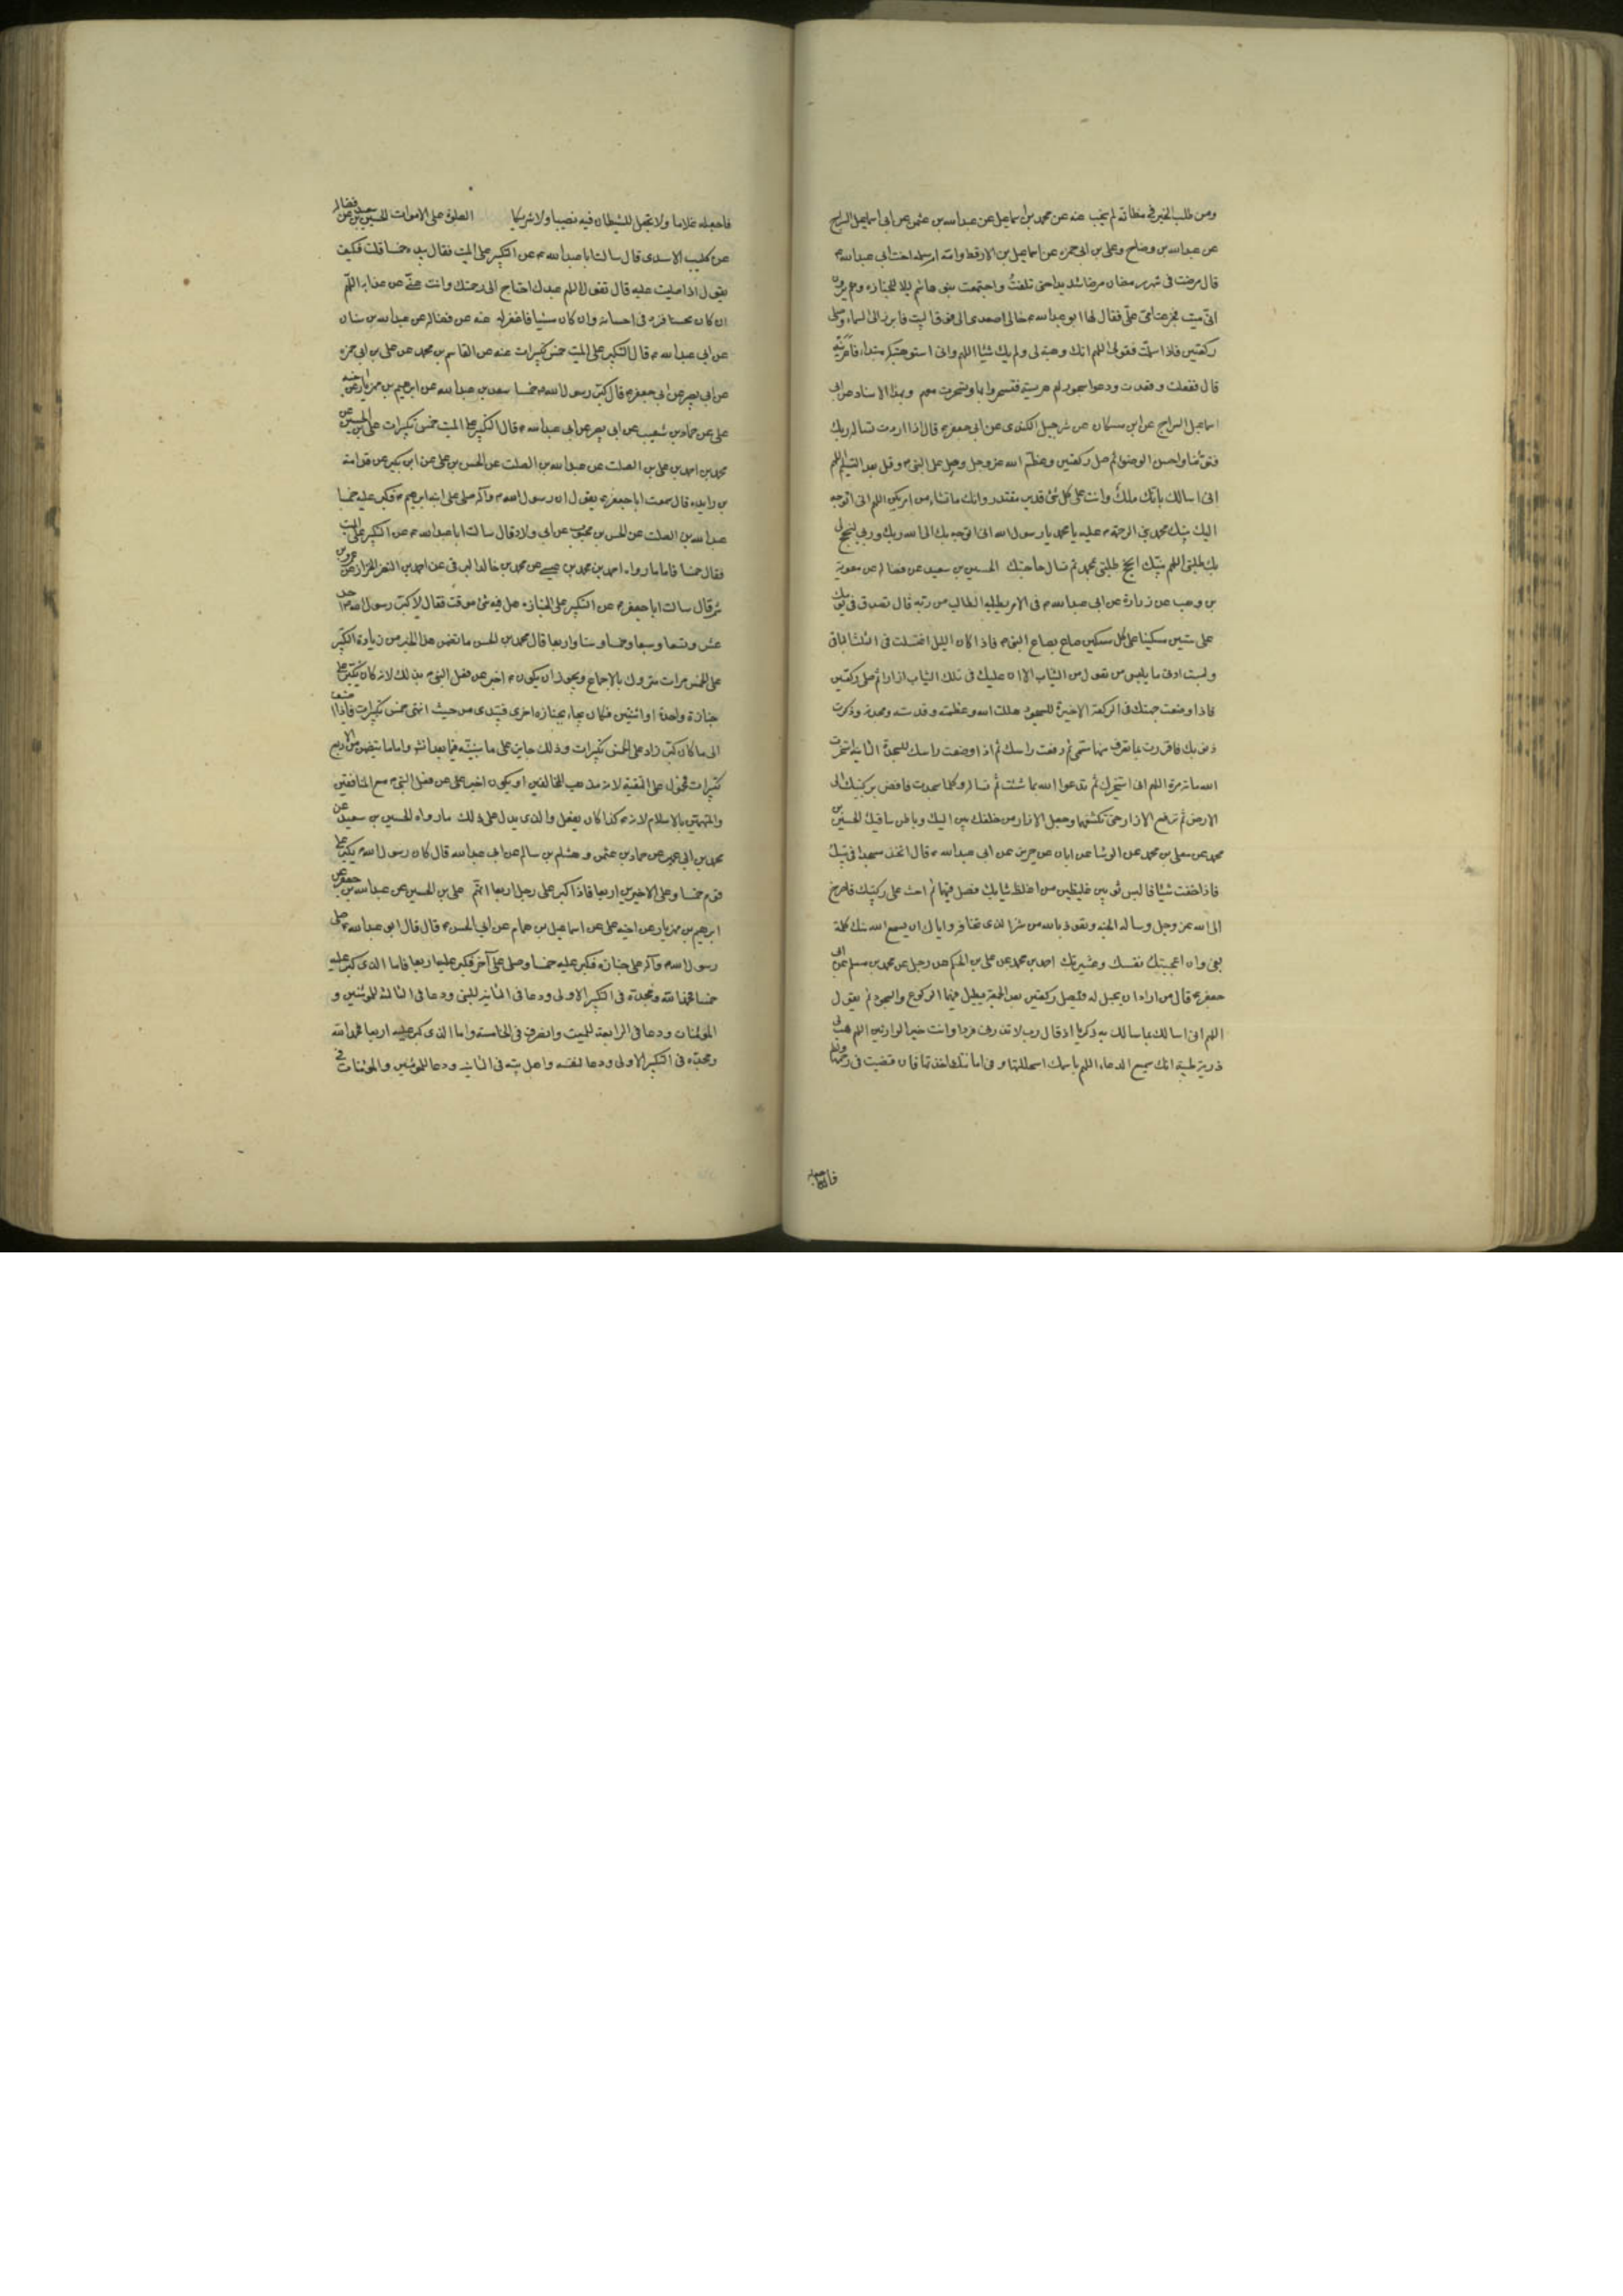 ومن طلب الخير في مظانه لم يخب عنه عن محمد بن اسماعيل عن عبدالله بن عثمن عن ابي اسماعيل السراج
عن عبدالله بن وضاح وعلي بن ابي حمزه عن اسماعيل بن الارقط وامه ام سلمه اخت ابي عبدالله ع
قال مرضت في شهر رمضان مرضا شديدا حتى ثقلت واجتمعت بنو هاشم ليلا للجنازه وهم يرون
اني ميت فجزعت امي علي فقال لها ابو عبدالله ع خالي اصعدي الى فوق البيت فابرزي الى السماء وصلي
ركعتين فاذا سلمت فقولي اللهم انك وهبته لي ولم يك شيئا اللهم واني استوهبتكه مبتدءا فاعرنيه
قال ففعلت وقعدت ودعوا بسحور لهم هريسه فتسحروا بها وتسحرت معهم وبهذا الاسناد عن ابي
اسماعيل السراج عن ابن مسكان عن شرحبيل الكندي عن ابي جعفر ع قال اذا اردت تساله ربك
فتوضا واحسن الوضوء ثم صل ركعتين وعظم الله عز وجل وصل على النبي ص وقل بعد التسليم اللهم
اني اسالك بانك ملك وانت على كل شئ قدير مقتدر وانك ما تشاء من امر يكن اللهم اني اتوجه
اليك بنبيك محمد نبي الرحمة ص عليه يا محمد يا رسول الله اني اتوجه بك الى الله ربك وربي لينجح لي
بك طلبتي اللهم بنبيك انجح طلبتي بمحمد ثم تسال حاجتك الحسين بن سعيد عن فضاله عن معوية
بن وهب عن زرارة عن ابي عبدالله ع في الامر يطلبه الطالب من ربه قال تصدق في يومك
على ستين مسكينا على كل مسكين صاع بصاع النبي ص فاذا كان الليل اغتسلت في الثلث الباقي
ولبست ادنى ما يلبس من تعول من الثياب الا ان عليك في تلك الثياب ازارا ثم صل ركعتين
فاذا وضعت جبهتك في الركعة الاخيرة للسجود هللت الله وعظمته وقدسته ومجدته وذكرت
ذنوبك فاقررت بما تعرف منها تسمي ثم رفعت راسك ثم اذا وضعت راسك للسجدة الثانيه استخرت
الله مائة مرة اللهم اني استخيرك ثم تدعوا الله بما شئت ثم تساله وكلما سجدت فافض بركبتيك الى
الارض ثم ترفع الازار حتى تكشفها واجعل الازار من خلفك بين اليتيك وباطن ساقيك الحسين بن
محمد عن معلى بن محمد عن الوشا عن ابان عن حريز عن ابي عبدالله ع قال اتخذ مسجدا في بيتك
فاذا خفت شيئا فالبس ثوبين غليظين من اغلظ ثيابك فصل فيهما ثم اجث على ركبتيك فاصرخ
الى الله عز وجل وساله الجنه وتعوذ بالله من شر الذي تخافه واياك ان يسمع الله منك كلمة
بغي وان اعجبتك نفسك وعشيرتك احمد بن محمد عن علي بن الحكم عن رجل عن محمد بن مسلم عن ابي
جعفر ع قال من اراد ان يحبل له فليصل ركعتين بعد الجمعة يطيل فيهما الركوع والسجود ثم يقول
اللهم اني اسالك بما سالك به ذكريا اذ قال رب لا تذرني فردا وانت خير الوارثين اللهم هب لي
ذرية طيبة انك سميع الدعاء اللهم باسمك استحللتها وفي امانتك اخذتها فان قضيت في رحمها ولدا
فاجعله
فاجعله غلاما ولا تجعل للشيطان فيه نصيبا ولا شريكا الصلوة على الاموات الحسين بن سعيد عن فضاله
عن كليب الاسدي قال سالت ابا عبدالله ع عن التكبير على الميت فقال بيده خمسا قلت فكيف
يقول اذا صليت عليه قال تقول اللهم عبدك احتاج الى رحمتك وانت غني عن عذابه اللهم
ان كان محسنا فزد في احسانه وان كان مسيئا فاغفر له عنه عن فضاله عن عبدالله بن سنان
عن ابي عبدالله ع قال التكبير على الميت خمس تكبيرات عنه عن القاسم بن محمد عن علي بن ابي حمزه
عن ابي بصير عن ابي جعفر ع قال كبر رسول الله ص خمسا سعد بن عبدالله عن ابرهيم بن مهزيار عن اخيه
علي عن حماد بن شعيب عن ابي بصير عن ابي عبدالله ع قال التكبير على الميت خمس تكبيرات علي بن الحسين عن
محمد بن احمد بن علي بن الصلت عن عبدالله بن الصلت عن الحسن بن علي عن ابن بكير عن قدامة
بن زايده قال سمعت ابا جعفر ع يقول ان رسول الله ص وآله صلى على ابنه ابرهيم ع فكبر عليه خمسا
عبدالله بن الصلت عن الحسن بن محبوب عن ابي ولاد قال سالت ابا عبدالله ع عن التكبير على الميت
فقال خمسا فاما ما رواه احمد بن محمد بن عيسى عن محمد بن خالد البرقي عن احمد بن النضر الخزاز عن عمرو بن
شمر قال سالت ابا جعفر ع عن التكبير على الجنازه هل فيه شئ موقت فقال لا كبر رسول الله ص احد
عشر وتسعا وسبعا وخمسا وستا واربعا قال محمد بن الحسن ما تضمن هذا الخبر من زيادة التكبير
على الخمس مرات متروك بالاجماع ويجوز ان يكون ع اخبر عن فعل النبي ص بذلك لانه كان يكبر على
جنازة واحدة او اثنتين فكان يجاء بجنازه اخرى فيبتدى من حيث انتهى خمس تكبيرات فاذا اضيف
الى ما كان كبر زاد على الخمس تكبيرات وذلك جايز على ما سنبينه فيما بعد انشاء الله واما ما يتضمن من الاربع
تكبيرات فمحمول على التقية لانه مذهب المخالفين او يكون اخبر على عن فعل النبي ص مع المنافقين
والمتهمين بالاسلام لانه ع كذا كان يفعل والذي يدل على ذلك ما رواه الحسين بن سعيد عن
محمد بن ابي عمير عن حماد بن عثمن وهشام بن سالم عن ابي عبدالله قال كان رسول الله ص يكبر على
قوم خمسا وعلى الاخرين اربعا فاذا كبر على رجل اربعا اتهم علي بن الحسين عن عبدالله بن جعفر عن
ابرهيم بن مهزيار عن اخيه علي عن اسماعيل بن همام عن ابي الحسن ع قال قال ابو عبدالله ع صلى
رسول الله ص وآله على جنازه فكبر عليه خمسا وصلى على آخر فكبر عليه اربعا فاما الذي كبر عليه
خمسا فحمد الله ومجده في التكبير الاولى ودعا في الثانيه للنبي ودعا في الثالثه للمومنين و
المؤمنات ودعا في الرابعة للميت وانصرف في الخامسه واما الذي كبر عليه اربعا فحمد الله
ومجده في التكبير الاولى ودعا لنفسه واهل بيته في الثانيه ودعا للمومنين والمؤمنات في